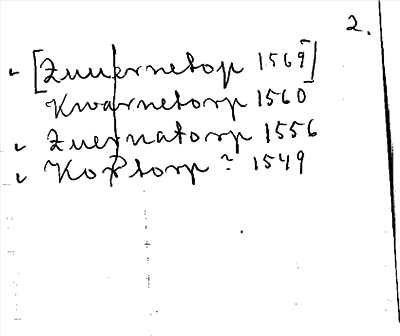 2.
[Zuuernetop 1569]
Kwarnetorp 1560
Zuernatorp 1556
Koptorp? 1549